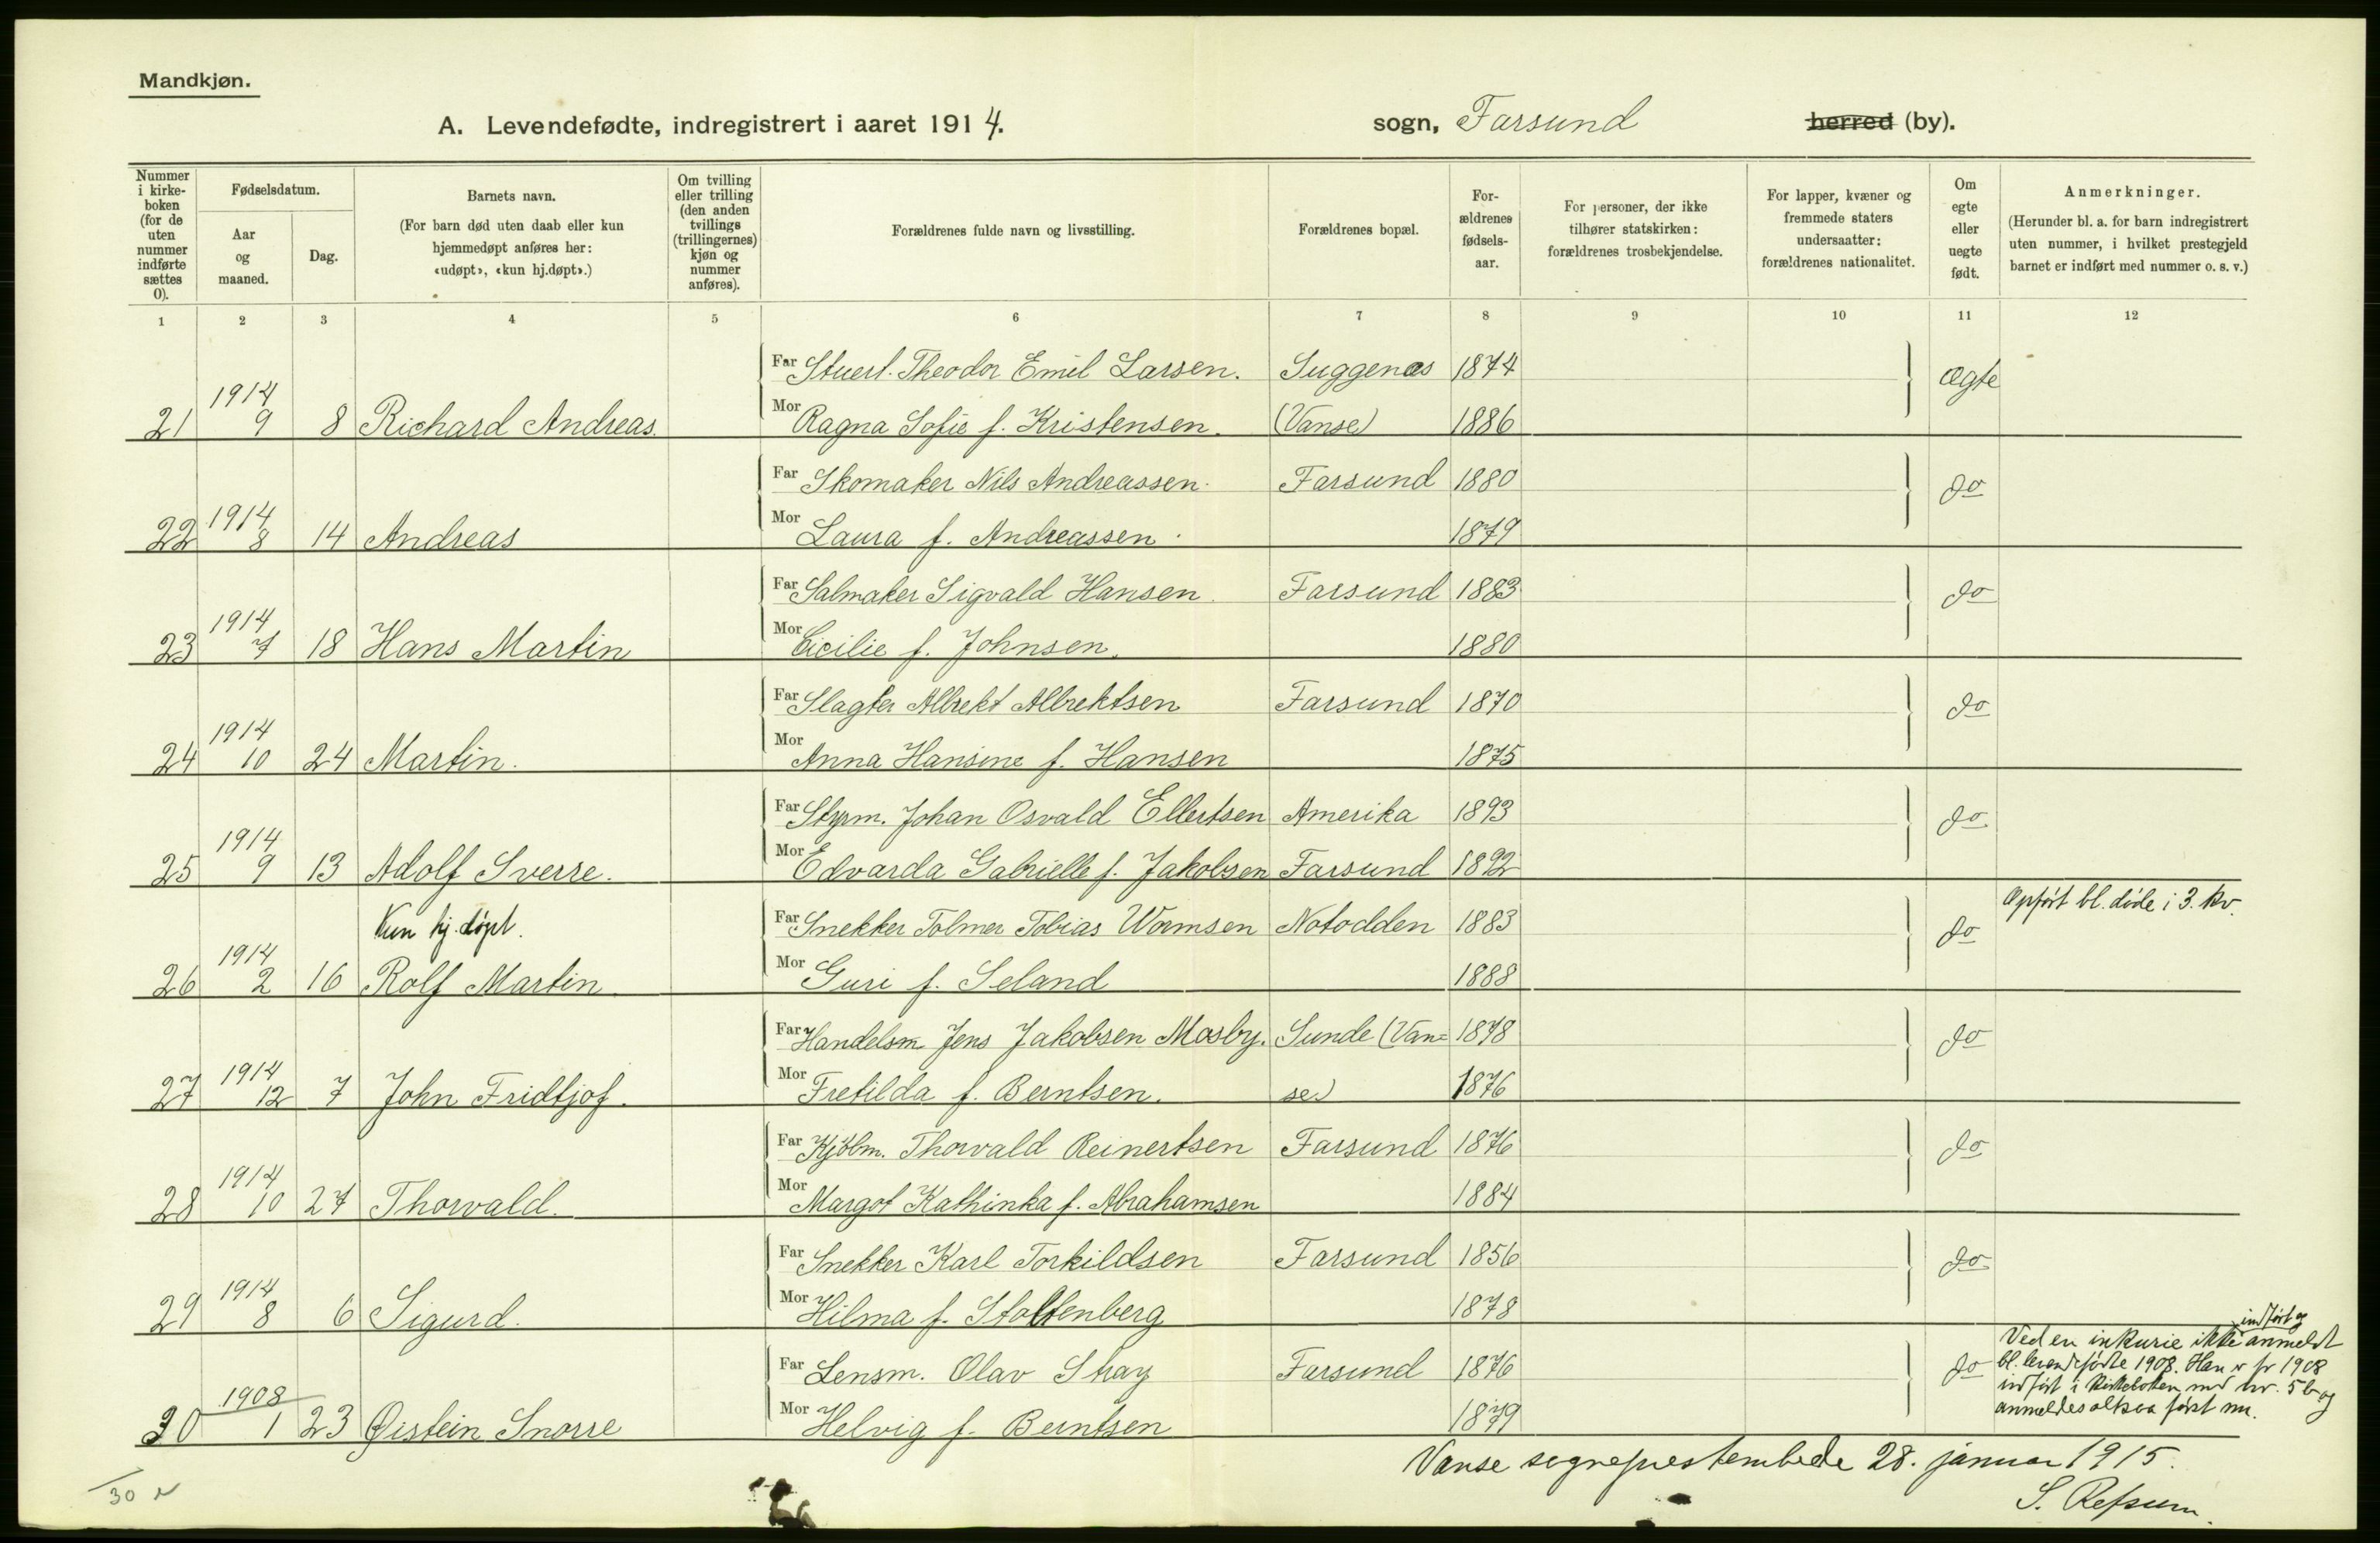 Mandkjøn.
A. Levendefødte, indregistrert i aaret 1914. sogn, Farsund herred (by).
Nummer i kirke-boken (for de uten nummer indførte sættes 0).
Fødselsdatum.
Aar og maaned.
Dag.
Barnets navn.
(For barn død uten daab eller kun hjemmedøpt anføres her: «udøpt», «kun hj.døpt».)
Om tvilling eller trilling (den anden tvillings (trillingernes) kjøn og nummer anføres).
Forældrenes fulde navn og livsstilling.
Forældrenes bopæl.
For-ældrenes fødsels-aar.
For personer, der ikke tilhører statskirken: forældrenes trosbekjendelse.
For lapper, kvæner og fremmede staters undersaatter: forældrenes nationalitet.
Om egte eller uegte født.
Anmerkninger.
(Herunder bl. a. for barn indregistrert uten nummer, i hvilket prestegjeld barnet er indført med nummer o. s. v.)
1 2 3 4 5 6 7 8 9 10 11 12
Far Stuert. Theodor Emil Larsen. Suggenes 1874 ægte
21 1914 9 8 Richard Andreas. Mor Ragna Sofie f. Kristensen. (Vanse) 1886
Far Skomaker Nils Andreassen. Farsund 1880 do
22 1914 8 14 Andreas Mor Laura f. Andreassen. 1879
Far Salmaker Sigvald Hansen. Farsund 1883 do
23 1914 7 18 Hans Martin Mor Cicilie f. Johnsen. 1880
Far Slagter Albrekt Albrektsen Farsund 1870 do
24 1914 10 24 Martin. Mor Anna Hansine f. Hansen 1875
Far Styrm. Johan Osvald Ellertsen Amerika 1893 do
25 1914 9 13 Adolf Sverre. Mor Edvarda Gabrielle f. Jakobsen Farsund 1892
Kun hj. døpt. Far Snekker Tolmer Tobias Wormsen Notodden 1883 do Opført bl. døde i 3. kv.
26 1914 2 16 Rolf Martin Mor Guri f. Seland 1888
Far Handelsm Jens Jakobsen Mosby. Sunde (Van= 1878 do
27 1914 12 7 John Fridtjof. Mor Fretilda f. Berntsen. se) 1876
Far Kjøbm. Thorvald Reinertsen Farsund 1876 do
28 1914 10 27 Thorvald. Mor Margot Kathinka f. Abrahamsen 1884
Far Snekker Karl Torkildsen Farsund 1856 do
29 1914 8 6 Sigurd. Mor Hilma f. Stoltenberg 1878
Far Lensm. Olav Skay Farsund 1876 do
30 1908 1 23 Øistein Snorre Mor Helvig f. Berntsen 1879
indført og
Ved en inkurie ikke anmeldt
bl. levendefødte 1908. Han er for 1908
indført i kirkeboken med nr. 5 b og
anmeldes altsaa først nu.
Vanse sogneprestembede 28. januar 1915.
S. Refsum.
30